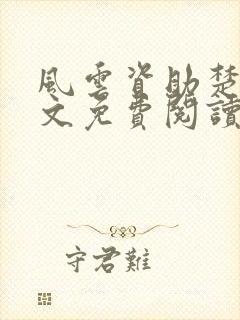 風雲資助楚
文免費閱讀
守君難